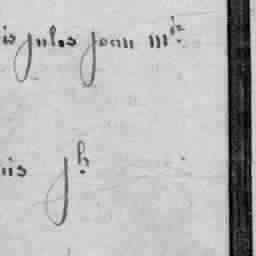 is jules jean m^ie
uis jh